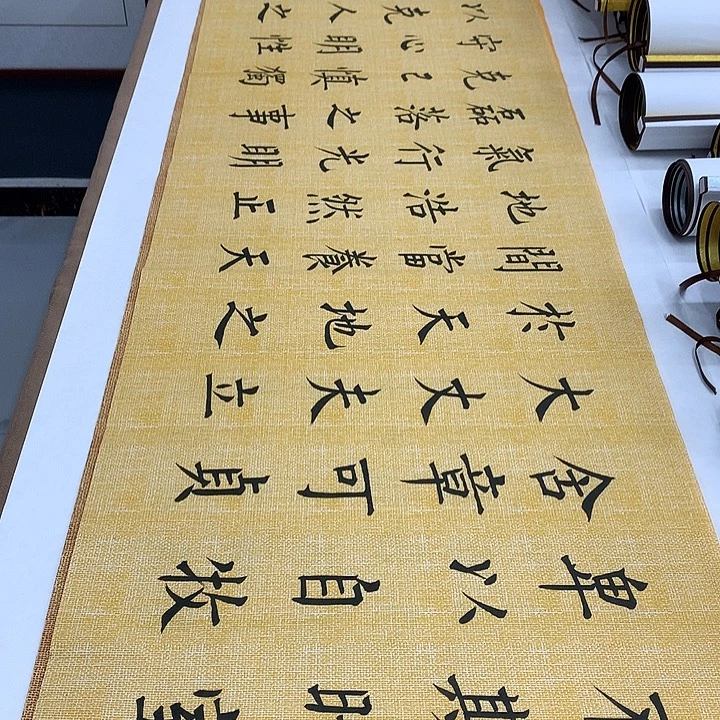 卑以自牧
含章可貞
大丈夫立
於天地之
間當養天
地浩然正
氣行光明
磊落之事
克己慎獨
守心明性
以克人之